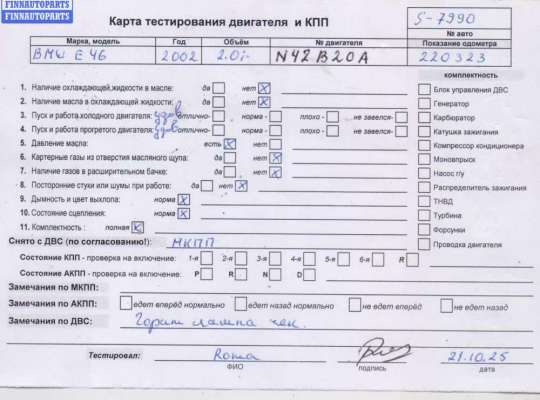 FINNAUTOPARTS
FINNAUTOPARTS
Карта тестирования двигателя и КПП
S-7990
№ авто
Марка, модель Год Объём № двигателя Показание одометра
BMW E46 2002 2.0i N42B20A 220323
комплектность
1. Наличие охлаждающей жидкости в масле: да нет X
2. Наличие масла в охлаждающей жидкости: да нет X
3. Пуск и работа холодного двигателя: отлично- норма - плохо - не завелся-
4. Пуск и работа прогретого двигателя: отлично- норма - плохо - не завелся-
5. Давление масла: есть X нет
6. Картерные газы из отверстия масляного щупа: да нет X
7. Наличие газов в расширительном бачке: да нет X
8. Посторонние стуки или шумы при работе: да нет X
9. Дымность и цвет выхлопа: норма X
10. Состояние сцепления: норма X
11. Комплектность : полная X
Блок управления ДВС
Генератор
Карбюратор
Катушка зажигания
Компрессор кондиционера
Моновпрыск
Насос г/у
Распределитель зажигания
ТНВД
Турбина
Форсунки
Проводка двигателя
Снято с ДВС (по согласованию!): МКПП
Состояние КПП - проверка на включение: 1-я 2-я 3-я 4-я 5-я 6-я R
Состояние АКПП - проверка на включение: P R N D
Замечания по МКПП:
Замечания по АКПП: едет вперёд нормально едет назад нормально не едет вперёд не едет назад
Замечания по ДВС: Горит лампа чек.
Тестировал: Roma 21.10.25
ФИО подпись дата